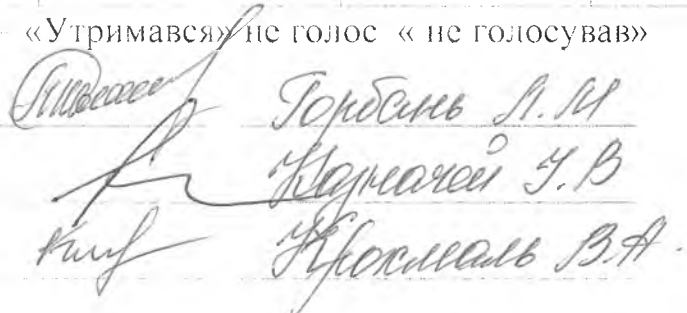 «Утримався» не голос « не голосував»
Горбань Л. М
Казначей У. В
Крохмаль В.А.